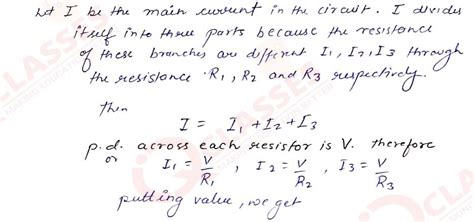 Let I be the main current in the circuit. I divides
itself into three parts because the resistance
of these branches are different I₁, I₂, I₃ through
the resistance R₁, R₂ and R₃ respectively.
then
I = I₁ + I₂ + I₃
p.d. across each resistor is V. therefore
or I₁ = V/R₁, I₂ = V/R₂, I₃ = V/R₃
putting value, we get